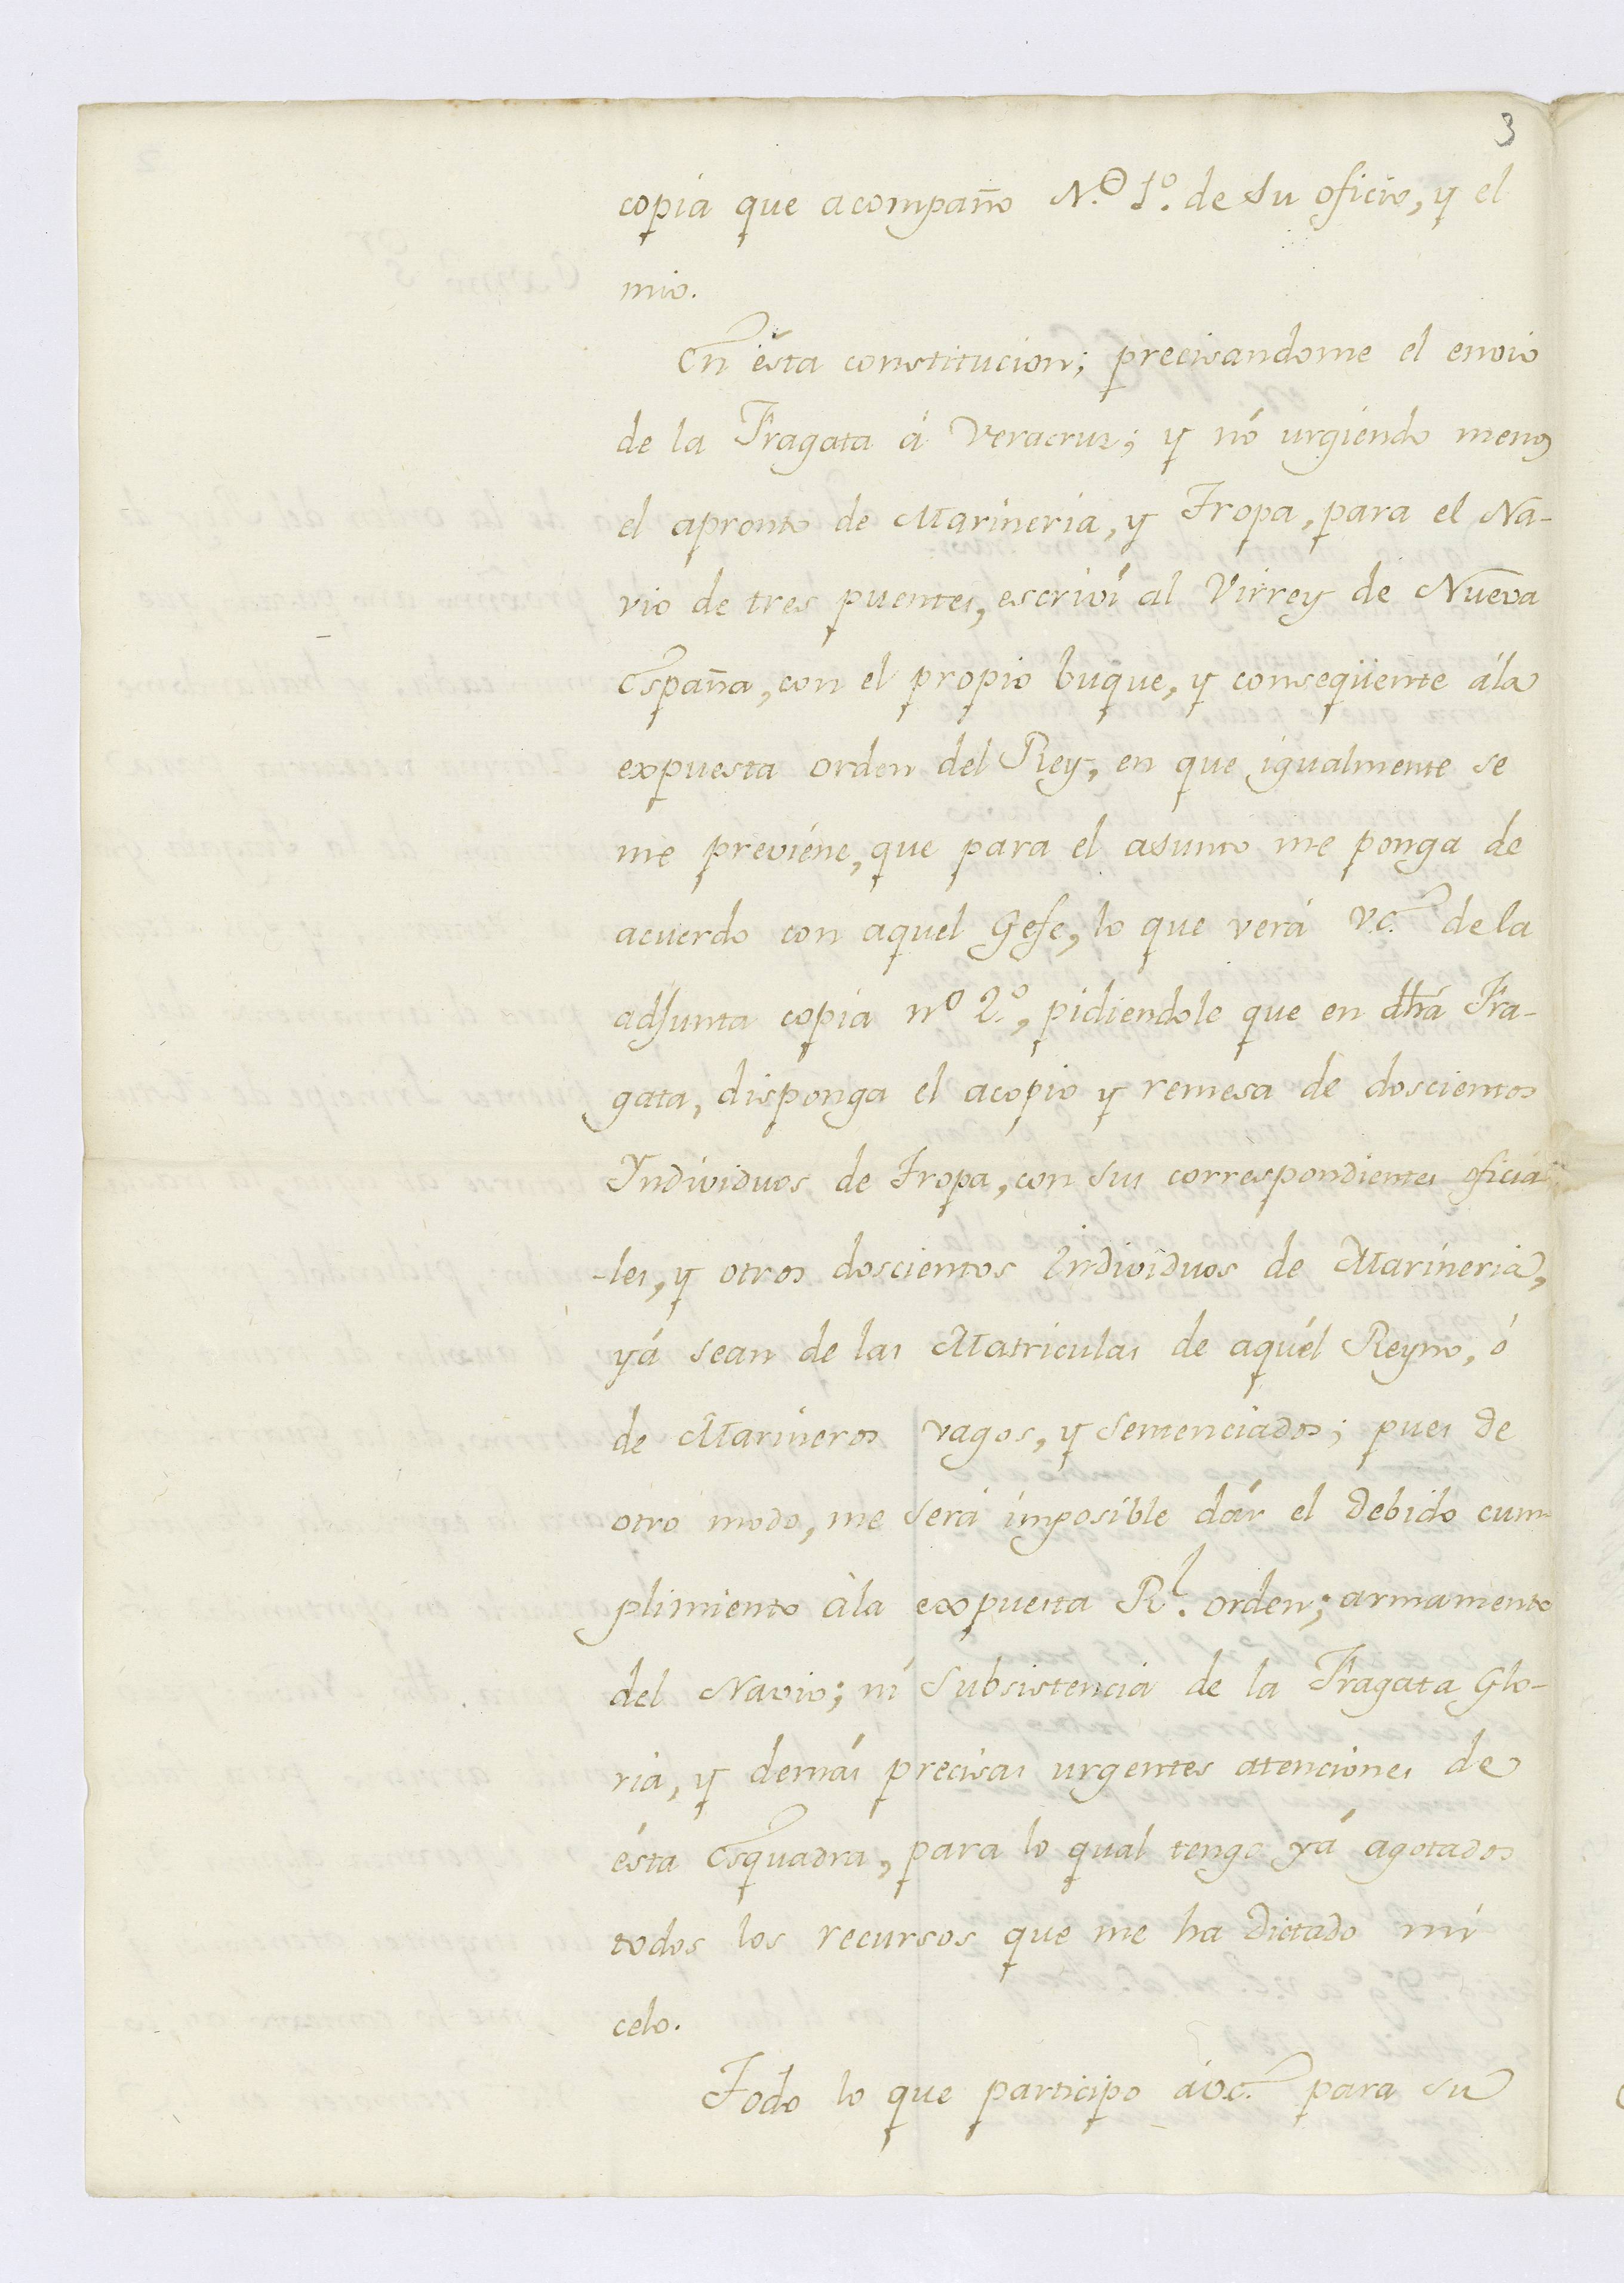 3
copia que acompaño N.º 1º. de su oficio, y el
mio.
En ésta constitucion; precisandome el envio
de la Fragata á Veracruz; y nó urgiendo menos
el apronto de Marineria, y Tropa, para el Na-
vio de tres puentes, escriví al Virrey de Nueva
España, con el propio buque, y conseqüente ála
expuesta orden del Rey, en que igualmente se
me previéne, que para el asunto me ponga de
acuerdo con aquel Gefe, lo que verá V.E. de la
adjunta copia nº 2.º, pidiendole que en dhá Fra-
gata, disponga el acopio y remesa de doscientos
Yndividuos de Tropa, con sus correspondientes oficia
-les, y otros doscientos Individuos de Marineria,
yá sean de las Matriculas de aquél Reyno, ó
de Marineros vagos, y sentenciados; pues de
otro modo, me será imposible dár el debido cum-
plimiento ála expuesta Rl. orden; armamento
del Navio; ni subsistencia de la Fragata Glo-
ria, y demás precisas urgentes atenciones de
ésta Esquadra, para lo qual tengo yá agotados
todos los recursos que me ha dictado mi
celo.
Todo lo que participo áV.E. para su